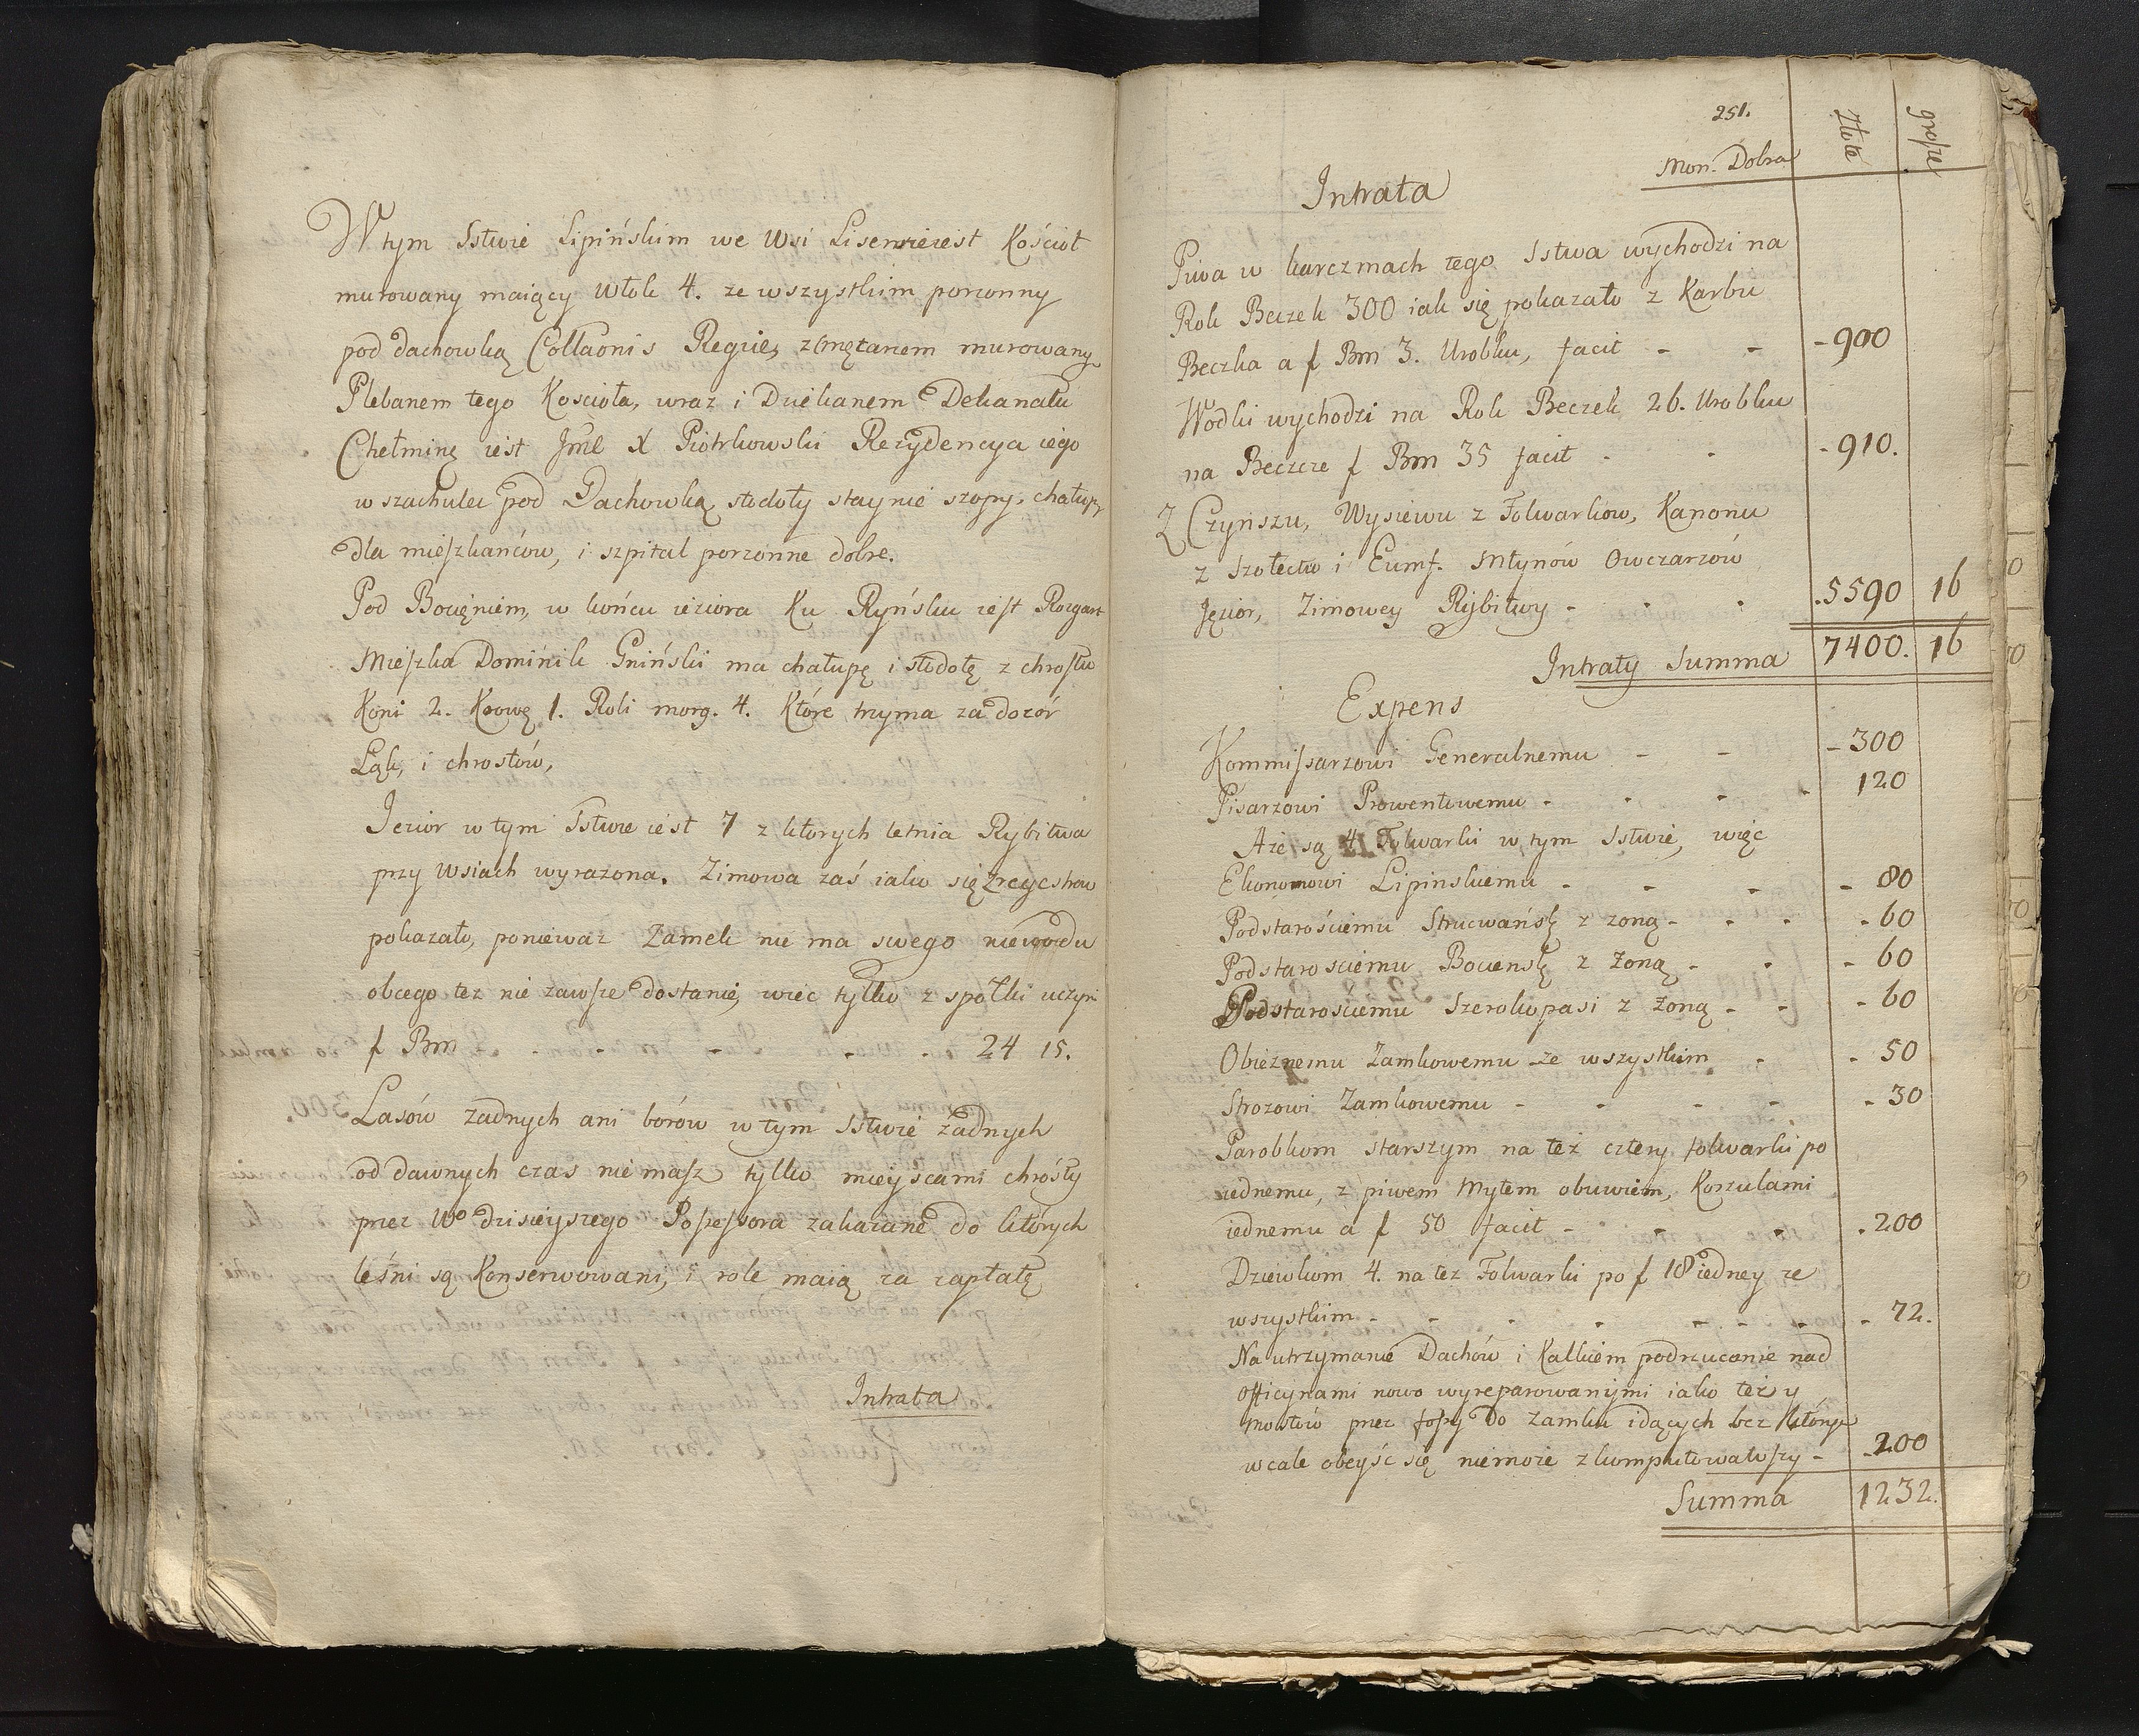 W tym Sstwie Lipińskim we Wsi Lisewie iest Kościoł
murowany maiący Włok 4. ze wszystkim porzonny
pod dachowką Collaonis Regiæ, z Cmętarzem murowany
Plebanem tego Kościoła, wraz i Dziekanem Dekanatu
Chełminę iest Jmc X Piotrkowski Rezydencya iego
w szachulec pod Dachowką, stodoły staynie szopy, chałupy
dla mieszkańców, i szpital porzonne dobre.
Pod Bocięniem, w końcu ieziora Ku Ryńsku iest Rozgart
Mieszka Dominik Gniński ma chałupę i stodołę z chrostu
Koni 2. Krowę 1. Roli morg. 4. Które trzyma za dozór
Łąk, i chrostów,
Jezior w tym Sstwie iest 7 z ktorych letnia Rybitwa
przy Wsiach wyrazona. Zimowa zaś iako się z reiestrow
pokazało, poniewaz Zamek nie ma swego niewodu
obcego tez nie zawsze dostanie, więc tylko z społki uczyni
f Bm - - - - - 24 15.
Lasów zadnych ani borów w tym Sstwie żadnych
od dawnych czas nie masz tylko mieyscami chrósty
przez Wo dzisieyszego Possessora zakazane do których
leśni są Konserwowani, i role maią za zapłatę
Intrata
251.
Mon. Dobra
złote
grosze
Intrata
Piwa w karczmach tego Sstwa wychodzi na
Rok Beczek 300 iak się pokazało z Karbu
Beczka a f Bm 3. Urobku, facit - - - 900
Wodki wychodzi na Rok Beczek 26. Urobku
na Beczce f Bm 35 facit - - - 910.
Z Czynszu, Wysiewu z Folwarkow, Kanonu
z Szołectw i Eumf. Młynów Owczarzów
Jezior, Zimowey Rybitwy - - - 5590 16
Intraty Summa 7400. 16
Expens
Kommissarzowi Generalnemu - - - 300
Pisarzowi Prowentowemu - - - - 120
Aże są 4 Folwarki w tym Sstwie, więc
Ekonomowi Lipinskiemu - - - - 80
Podstarościemu Strucwańsk z zoną - - - - 60
Podstarosciemu Bociensk z Zoną - - - 60
Podstarościemu Szerokopasi z Zoną - - - 60
Obieznemu Zamkowemu ze wszystkim - - 50
Strozowi Zamkowemu - - - - - 30
Parobkom starszym na też cztery folwarki po
iednemu, z piwem Mytem obuwiem, Koszulami
iednemu a f 50 facit - - - - 200
Dziewkom 4. na tez Folwarki po f 18 iedney ze
wszystkim - - - - - - - - 72.
Na utrzymanie Dachów i Kalkiem podrzucanie nad
Officynami nowo wyreparowanymi iako też y
mostów przez fossy do Zamku idących bez których
wcale obeyść się niemoże zkomputowawszy - - 200
Summa 1232.